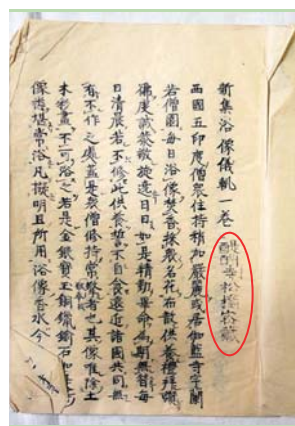 新集浴像儀軌一卷
醍醐寺松橋密藏
西國五印度僧衆住持稍加嚴麗或居伽藍寺宇
若僧園每日浴像焚香採衆名花布散供養禮拜
虔誠恭敬旋遶日日如是精勤畢命為期無暫
日清晨若不修此供養誓不自食遠近諸國共
不作之處蓋是衆僧修持常務者也其像唯除土
木彩畫不可浴之若是金銀寶玉銅鑞鍮石如
像皆堪常浴凡擬明旦所用浴像香水今